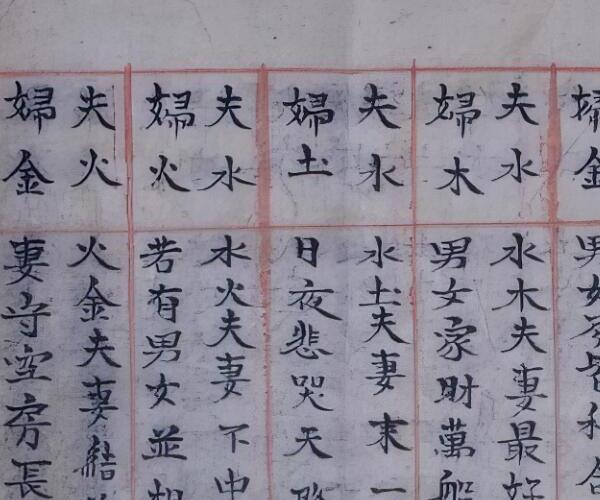 婦金
男女皆和合
夫水
婦木
水木夫妻最好
男女家財萬船
夫水
婦土
水土夫妻末一
日夜悲哭天
夫水
婦火
水火夫妻不中
若有男女並相
夫火
婦金
火金夫妻結
妻守空房長